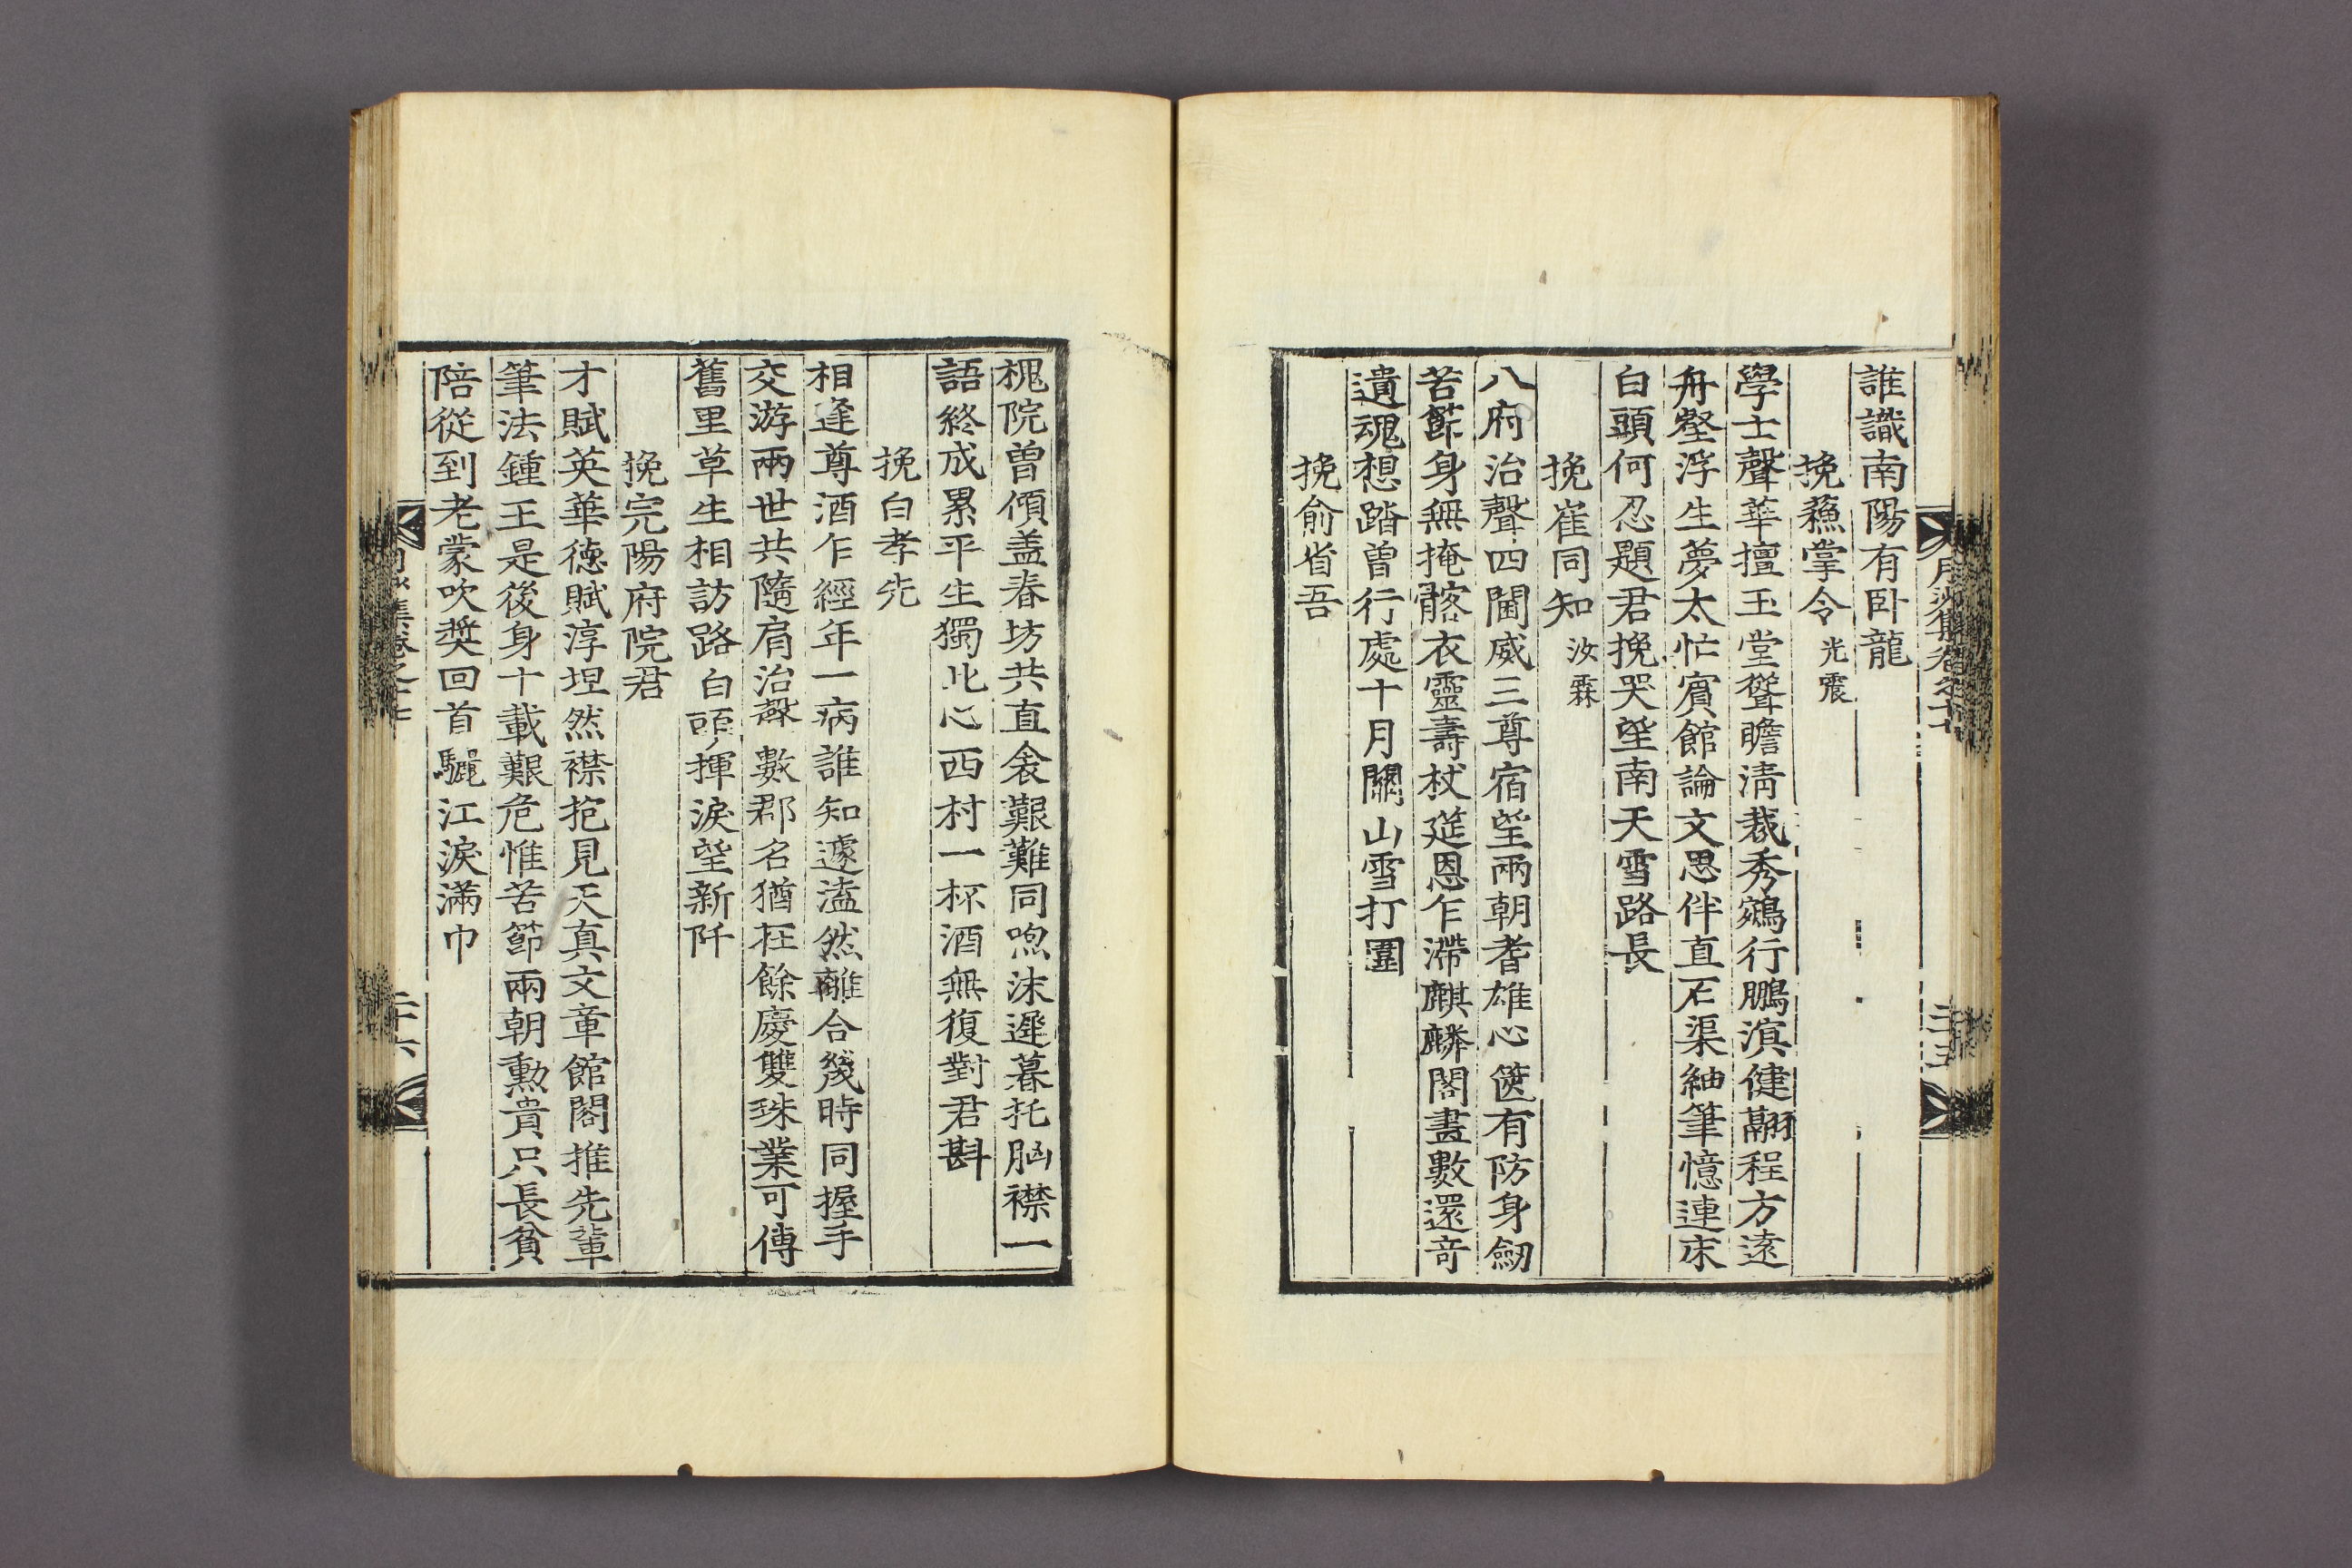 誰識南陽有卧龍
挽蘓掌令光震
學士聲華擅玉堂聳瞻淸裁秀鵷行鵬溟健翮程方遠
舟壑浮生夢太忙賓館論文思伴直石渠紬筆憶連床
白頭何忍題君挽哭望南天雪路長
挽崔同知汝霖
八府治聲四閫威三尊宿望兩朝耆雄心篋有防身劒
苦節身無掩髂衣靈壽杖筵恩乍滯麒麟閣畫數還奇
遺魂想踏曾行處十月關山雪打圍
挽俞省吾
槐院曾傾盖春坊共直衾艱難同呴沫遲暮托胷襟一
語終成累平生獨此心西村一杯酒無復對君斟
挽白孝先
相逢尊酒乍經年一病誰知遽溘然離合幾時同握手
交游兩世共隨肩治聲數郡名猶在餘慶雙珠業可傳
舊里草生相訪路白頭揮淚望新阡
挽完陽府院君
才賦英華德賦淳坦然襟抱見天真文章館閣推先輩
筆法鍾王是後身十載艱危惟苦節兩朝勳貴只長貧
陪從到老蒙吹奬回首驪江淚滿巾
月沙集卷之十七
二十五
二十六